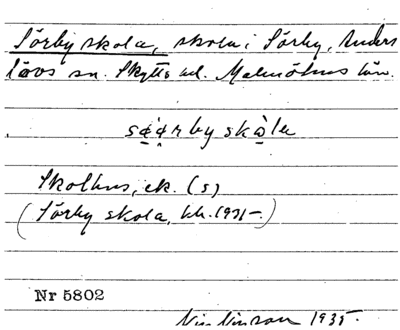 Sörby skola, skola i Sörby, Anders
lövs sn. Skytts hd. Malmöhus län.
Skolhus, ek. (s)
(Sörby skola, kh. 1931–)
Nr 5802
1935.